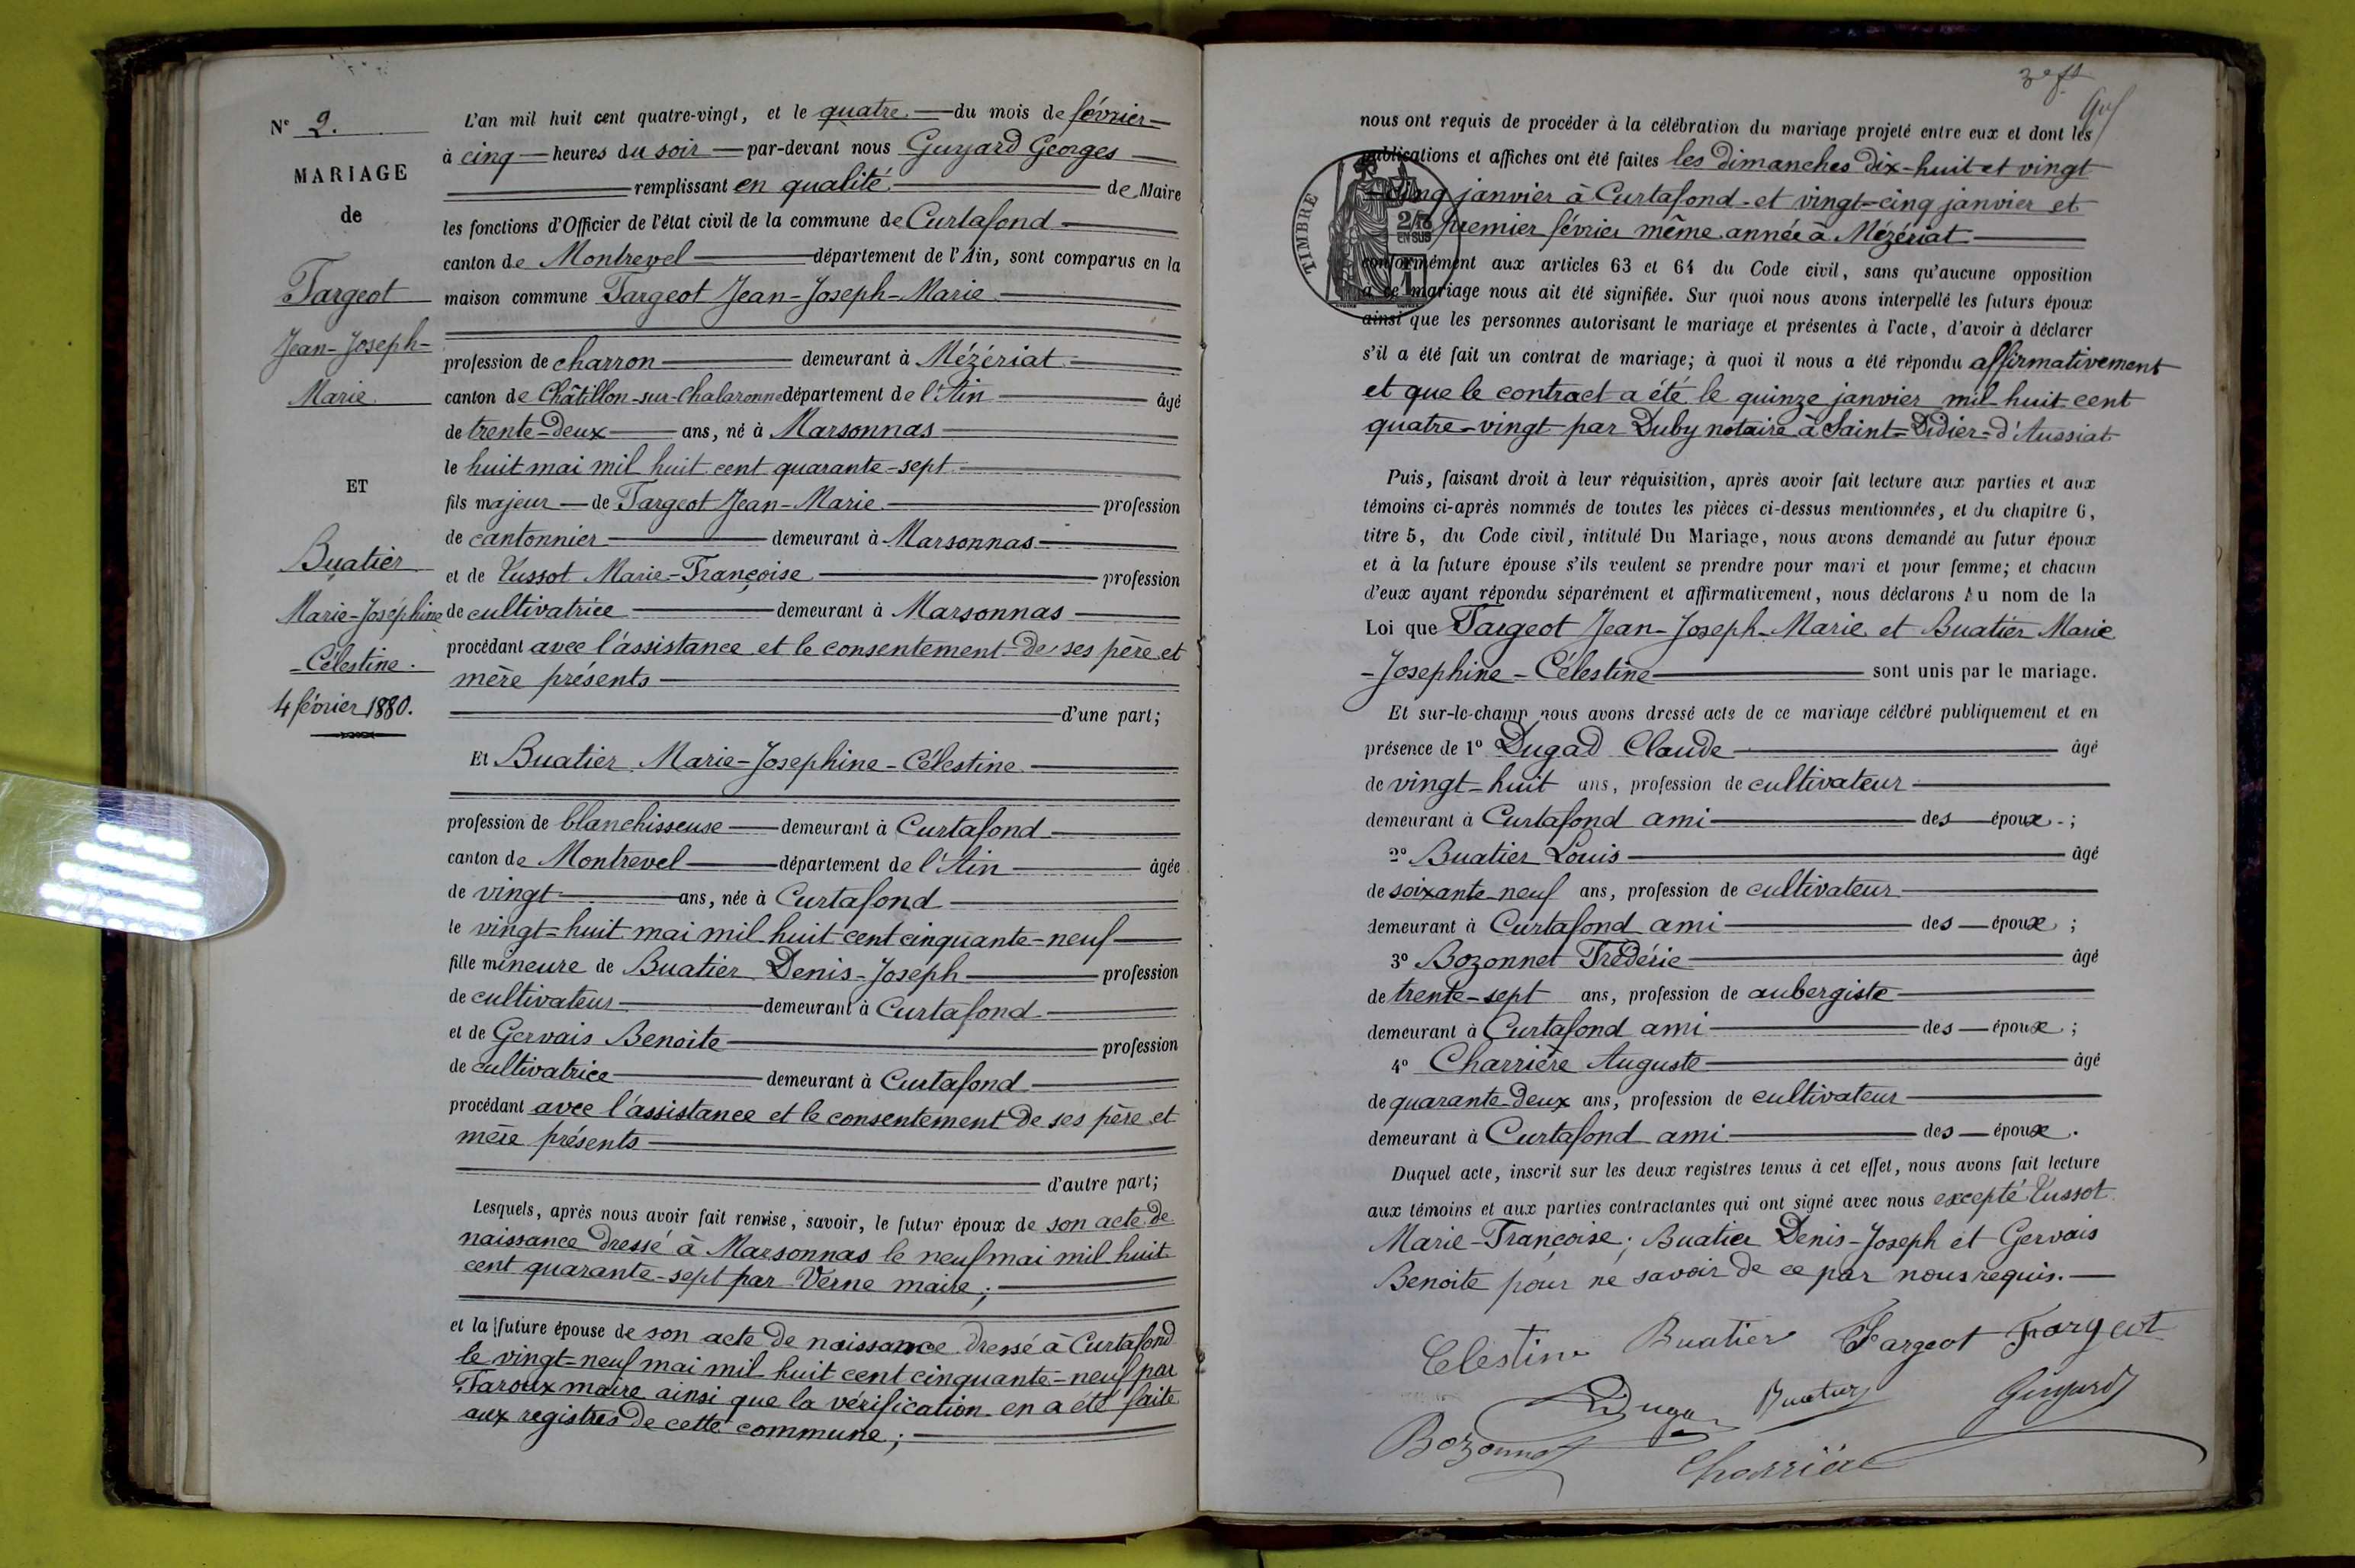 N° 2.
MARIAGE
de
Fargeot
Jean-Joseph-
Marie
ET
Buatier
Marie-Joséphine
-Célestine.
4 février 1880.
L'an mil huit cent quatre-vingt, et le quatre du mois de février
à cinq heures du soir par-devant nous Guyard Georges
remplissant en qualité de Maire
les fonctions d'Officier de l'état civil de la commune de Curtafond
canton de Montrevel département de l'Ain, sont comparus en la
maison commune Fargeot Jean-Joseph-Marie
profession de charron demeurant à Mézériat
canton de Châtillon-sur-Chalaronne département de l'Ain âgé
de trente-deux ans, né à Marsonnas
le huit mai mil huit cent quarante-sept
fils majeur de Fargeot Jean-Marie profession
de cantonnier demeurant à Marsonnas
et de Vussot Marie-Françoise profession
de cultivatrice demeurant à Marsonnas
procédant avec l'assistance et le consentement de ses père et
mère présents
d'une part;
Et Buatier Marie-Josephine-Célestine
profession de blanchisseuse demeurant à Curtafond
canton de Montrevel département de l'Ain âgée
de vingt ans, née à Curtafond
le vingt-huit mai mil huit cent cinquante-neuf
fille mineure de Buatier Denis-Joseph profession
de cultivateur demeurant à Curtafond
et de Gervais Benoite profession
de cultivatrice demeurant à Curtafond
procédant avec l'assistance et le consentement de ses père et
mère présents
d'autre part;
Lesquels, après nous avoir fait remise, savoir, le futur époux de son acte de
naissance dressé à Marsonnas le neuf mai mil huit
cent quarante-sept par Verne maire;
et la future épouse de son acte de naissance dressé à Curtafond
le vingt-neuf mai mil huit cent cinquante-neuf par
Faroux maire ainsi que la vérification en a été faite
aux registres de cette commune;
nous ont requis de procéder à la célébration du mariage projeté entre eux et dont les
publications et affiches ont été faites les dimanches dix-huit et vingt
-cinq janvier à Curtafond et vingt-cinq janvier et
premier février même année à Mézériat
TIMBRE
2/10
EN SUS
conformément aux articles 63 et 64 du Code civil, sans qu'aucune opposition
à ce mariage nous ait été signifiée. Sur quoi nous avons interpellé les futurs époux
ainsi que les personnes autorisant le mariage et présentes à l'acte, d'avoir à déclarer
s'il a été fait un contrat de mariage; à quoi il nous a été répondu affirmativement
et que le contract a été le quinze janvier mil huit cent
quatre-vingt par Duby notaire à Saint-Didier-d'Aussiat
Puis, faisant droit à leur réquisition, après avoir fait lecture aux parties et aux
témoins ci-après nommés de toutes les pièces ci-dessus mentionnées, et du chapitre 6,
titre 5, du Code civil, intitulé Du Mariage, nous avons demandé au futur époux
et à la future épouse s'ils veulent se prendre pour mari et pour femme; et chacun
d'eux ayant répondu séparément et affirmativement, nous déclarons Au nom de la
Loi que Fargeot Jean-Joseph-Marie et Buatier Marie
-Josephine-Célestine sont unis par le mariage.
Et sur-le-champ nous avons dressé acte de ce mariage célébré publiquement et en
présence de 1° Dugad Claude âgé
de vingt-huit ans, profession de cultivateur
demeurant à Curtafond ami des époux;
2° Buatier Louis âgé
de soixante-neuf ans, profession de cultivateur
demeurant à Curtafond ami des époux;
3° Bozonnet Frédéric âgé
de trente-sept ans, profession de aubergiste
demeurant à Curtafond ami des époux;
4° Charrière Auguste âgé
de quarante-deux ans, profession de cultivateur
demeurant à Curtafond ami des époux.
Duquel acte, inscrit sur les deux registres tenus à cet effet, nous avons fait lecture
aux témoins et aux parties contractantes qui ont signé avec nous excepté Vussot
Marie-Françoise; Buatier Denis-Joseph et Gervais
Benoite pour ne savoir de ce par nous requis.
Celestine Buatier Fargeot Fargeot
Dugad Buatier Guyard
Bozonnet Charrière